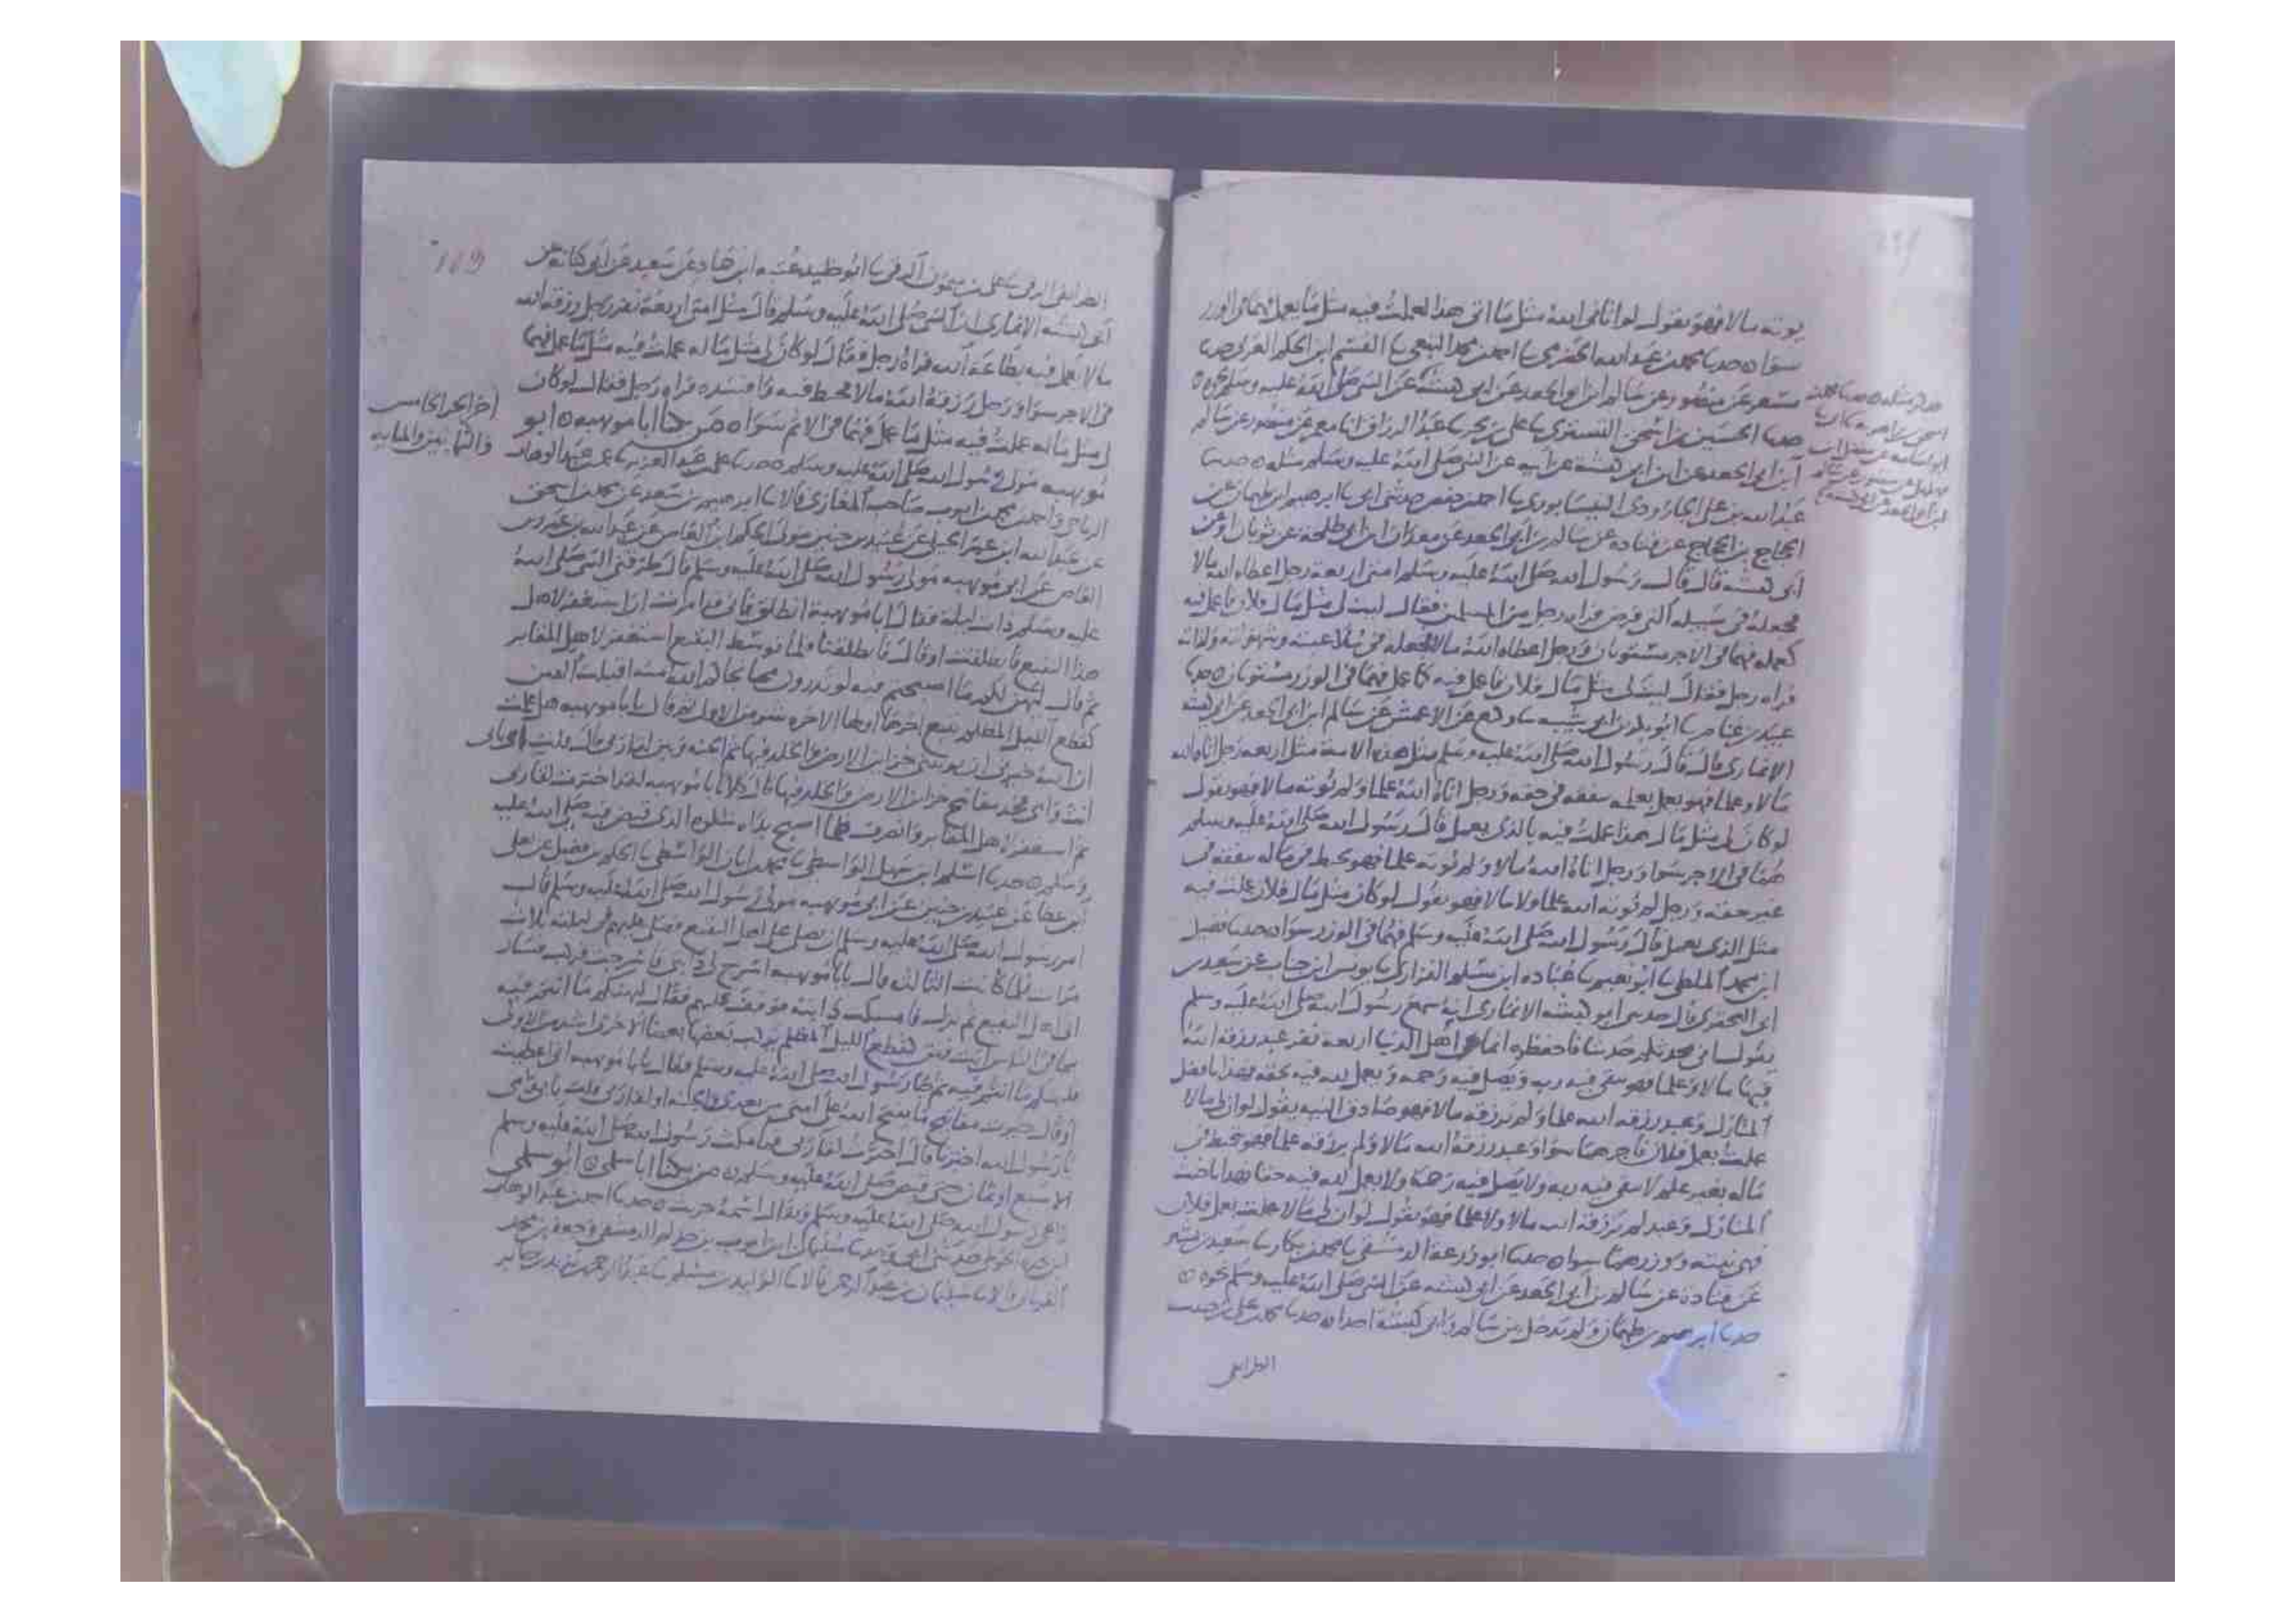 يوته مالا فهو يقول لو اتاني الله مثل ما اتى هذا لعملت فيه مثل ما يعمل فهما في الوزر
سواه حدثنا محمد بن عبد الله الحضرمي ثنا احمد بن محمد التبعي ثنا القسم ابن الحكم العرني حدثنا
مسعر عن منصور عن سالم ابن ابي الجعد عن ابي كبشة عن النبي صلى الله عليه وسلم نحوه
حدثنا الحسين بن اسحق التستري ثنا علي بن بحر ثنا عبد الرزاق انا معمر عن منصور عن سالم
ابن ابي الجعد عن ابن ابي كبشة عن ابيه عن النبي صلى الله عليه وسلم مثله حدثنا
عبد الله بن علي الجارودي النيسابوري ثنا احمد بن حفص حدثني ابي ثنا ابرهيم ابن طهمان عن
الحجاج بن الحجاج عن قتادة عن سالم بن ابي الجعد عن معدان ابن ابي طلحة عن ثوبان وعن
ابي كبشة قال قال رسول الله صلى الله عليه وسلم امتي اربعة رجل اعطاه الله مالا
فجعله في سبيله التي فرض فراه رجل من المسلمين فقال ليت لي مثل مال فلان فاعمل فيه
كعمله فهما في الاجر مستويان ورجل اعطاه الله مالا فجعله في
فراه رجل فقال ليت لي مثل مال فلان فاعمل فيه كما عمل فهما في الوزر مستويان حدثنا
عبيد بن غنام ثنا ابو بكر بن ابي شيبه ثنا وكيع عن الاعمش عن سالم ابن ابي الجعد عن ابي كبشة
الانماري قال قال رسول الله صلى الله عليه وسلم مثل هذه الامة مثل اربعة رجل اتاه الله
مالا وعلما فهو يعمل بعلمه ينفقه في حقه ورجل اتاه الله علما ولم يوته مالا فهو يقول
لو كان لي مثل مال هذا عملت فيه بالذي يعمل قال رسول الله صلى الله عليه وسلم
فهما في الاجر سوا ورجل اتاه الله مالا ولم يوته علما فهو يخبط في ماله ينفقه في
غير حقه ورجل لم يوته الله علما ولا مالا فهو يقول لو كان مثل مال فلان عملت فيه
مثل الذي يعمل قال رسول الله صلى الله عليه وسلم فهما في الوزر سواه حدثنا فضيل
ابن محمد الملطي ثنا ابو نعيم ثنا عباده ابن مسلم الفزاري ثنا يونس ابن خباب عن سعيد
ابي البختري قال حدثني ابو كبشه الانماري انه سمع رسول الله صلى الله عليه وسلم
يقول حدثنا فاحفظوه انما اهل الدنيا اربعة نفر عبد رزقه الله
فيها مالا وعلما فهو يتقي فيه ربه ويصل فيه رحمه ويعمل لله فيه بحقه فهذا بافضل
المنازل وعبد رزقه الله علما ولم يرزقه مالا فهو صادق النيه يقول لو ان لي مالا
عملت بعمل فلان فاجرهما سوا وعبد رزقه الله مالا ولم يرزقه علما فهو يخبط في
ماله بغير علم لا يتقي فيه ربه ولا يصل فيه رحما ولا يعمل لله فيه حقا فهذا باخبث
المنازل وعبد لم يرزقه الله مالا ولا علما فهو يقول لو ان لي مالا عملت بعمل فلان
فهي نيته ووزرهما سواه حدثنا ابو زرعة الدمشقي ثنا محمد بن بكار ثنا سعيد بن بشير
عن قتادة عن سالم بن ابي الجعد عن ابي كبشه عن النبي صلى الله عليه وسلم نحوه
حدثنا ابرهيم بن طهمان ولم يدخل بين سالم وابي كبشة احدا حدثنا محمد بن علي بن حبيب
الطرايفي
الطرايفي الرقي ثنا علي بن ميمون الرقي ثنا ابو خليد عتبه ابن حماد عن سعيد عن
ابي كبشه الانماري ان النبي صلى الله عليه وسلم قال مثل امتي اربعة نفر رجل رزقه الله
مالا يعمل فيه بطاعة الله فراه رجل فقال لو كان لي مثل ماله عملت فيه مثل ما عمل فهما
في الاجر سوا ورجل رزقه الله مالا فراه رجل فقال لو كان
لي مثل ماله عملت فيه مثل ما عمل فهما في الاثم سواه من يكنا ابا مويهبه ابو
مويهبه مولى رسول الله صلى الله عليه وسلم حدثنا علي بن عبد العزيز ثنا
ثنا احمد بن محمد بن ايوب صاحب المغازي قالا ثنا ابرهيم بن سعد عن محمد بن اسحق
عن عبد الله ابن عمر عن عبيد بن حنين مولى الحكم ابن العاص عن عبد الله بن عمرو بن
العاص عن ابي مويهبه مولى رسول الله صلى الله عليه وسلم قال طرقني النبي صلى الله
عليه وسلم ذات ليلة فقال يابا مويهبة انطلق فاني قد امرت ان استغفر لاهل
هذا البقيع فانطلقت او قال فانطلقنا فلما توسط البقيع استغفر لاهل المقابر
ثم قال ليهن لكم ما اصبحتم فيه لو تدرون مما نجاكم الله منه اقبلت الفتن
كقطع الليل المظلم يتبع اخرها اولها الاخره شر من الاولى ثم قال يابا مويهبه هل علمت
ان الله خيرني ان يوتيني خزاين الارض والخلد فيها ثم الجنه وبين لقا ربي قال قلت بابي
انت وامي فخذ مفاتح خزاين الارض والخلد فيها قال كلا يابا مويهبه لقد اخترت لقا ربي
ثم استغفر لاهل المقابر وانصرف فلما اصبح بداه شكوه الذي قبض فيه صلى الله عليه
وسلم حدثنا اسلم ابن سهل الواسطي ثنا محمد بن ابان الواسطي ثنا الحكم بن فضيل عن يعلى
ابن عطا عن عبيد بن حنين عن ابي مويهبه مولى رسول الله صلى الله عليه وسلم قال
امر رسول الله صلى الله عليه وسلم ان يصلي على اهل البقيع فصلى عليهم في ليلته ثلاث
مرات فلما كانت الثالثه قال يابا مويهبه اسرج لي دابتي فاسرجت فركب فسار
الى اهل البقيع ثم نزل فامسكت دابته فوقف عليهم فقال ليهنكم ما انتم فيه
مما فيه الناس اتت فتن كقطع الليل المظلم يركب بعضها بعضا الاخرى اشد من الاولى
فليهنكم ما انتم فيه ثم قام رسول الله صلى الله عليه وسلم فقال يابا مويهبه اني اعطيت
او قال خيرت مفاتيح ما يفتح الله على امتي من بعدي والجنه او لقا ربي قلت بابي وامي
يا رسول الله اخترنا قال اخترت لقا ربي فما مكث رسول الله صلى الله عليه وسلم
الا سبع او ثمان حتى قبض صلى الله عليه وسلم من يكنا ابا سلمى ابو سلمى
راعي رسول الله صلى الله عليه وسلم ويقال اسمه حريث حدثنا احمد بن عبد الوهاب
سليمان ابن ايوب بن حذلم الدمشقي وجعفر بن محمد
الفريابي قالا ثنا سليمان بن عبد الرحمن قالا ثنا الوليد بن مسلم ثنا عبد الرحمن بن يزيد بن جابر
اخر الجز الخامس
والثمانين والمايه